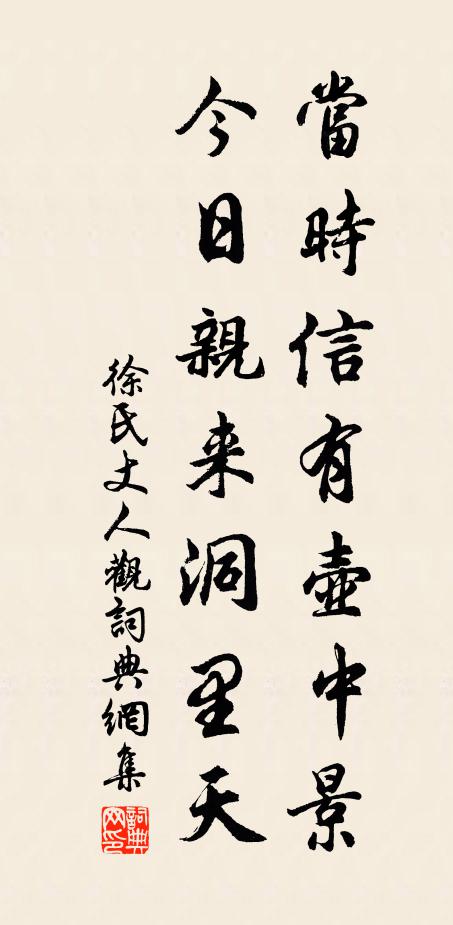 當時信有壺中景
今日親来洞里天
徐氏丈人觀詞典網集
詞典網印